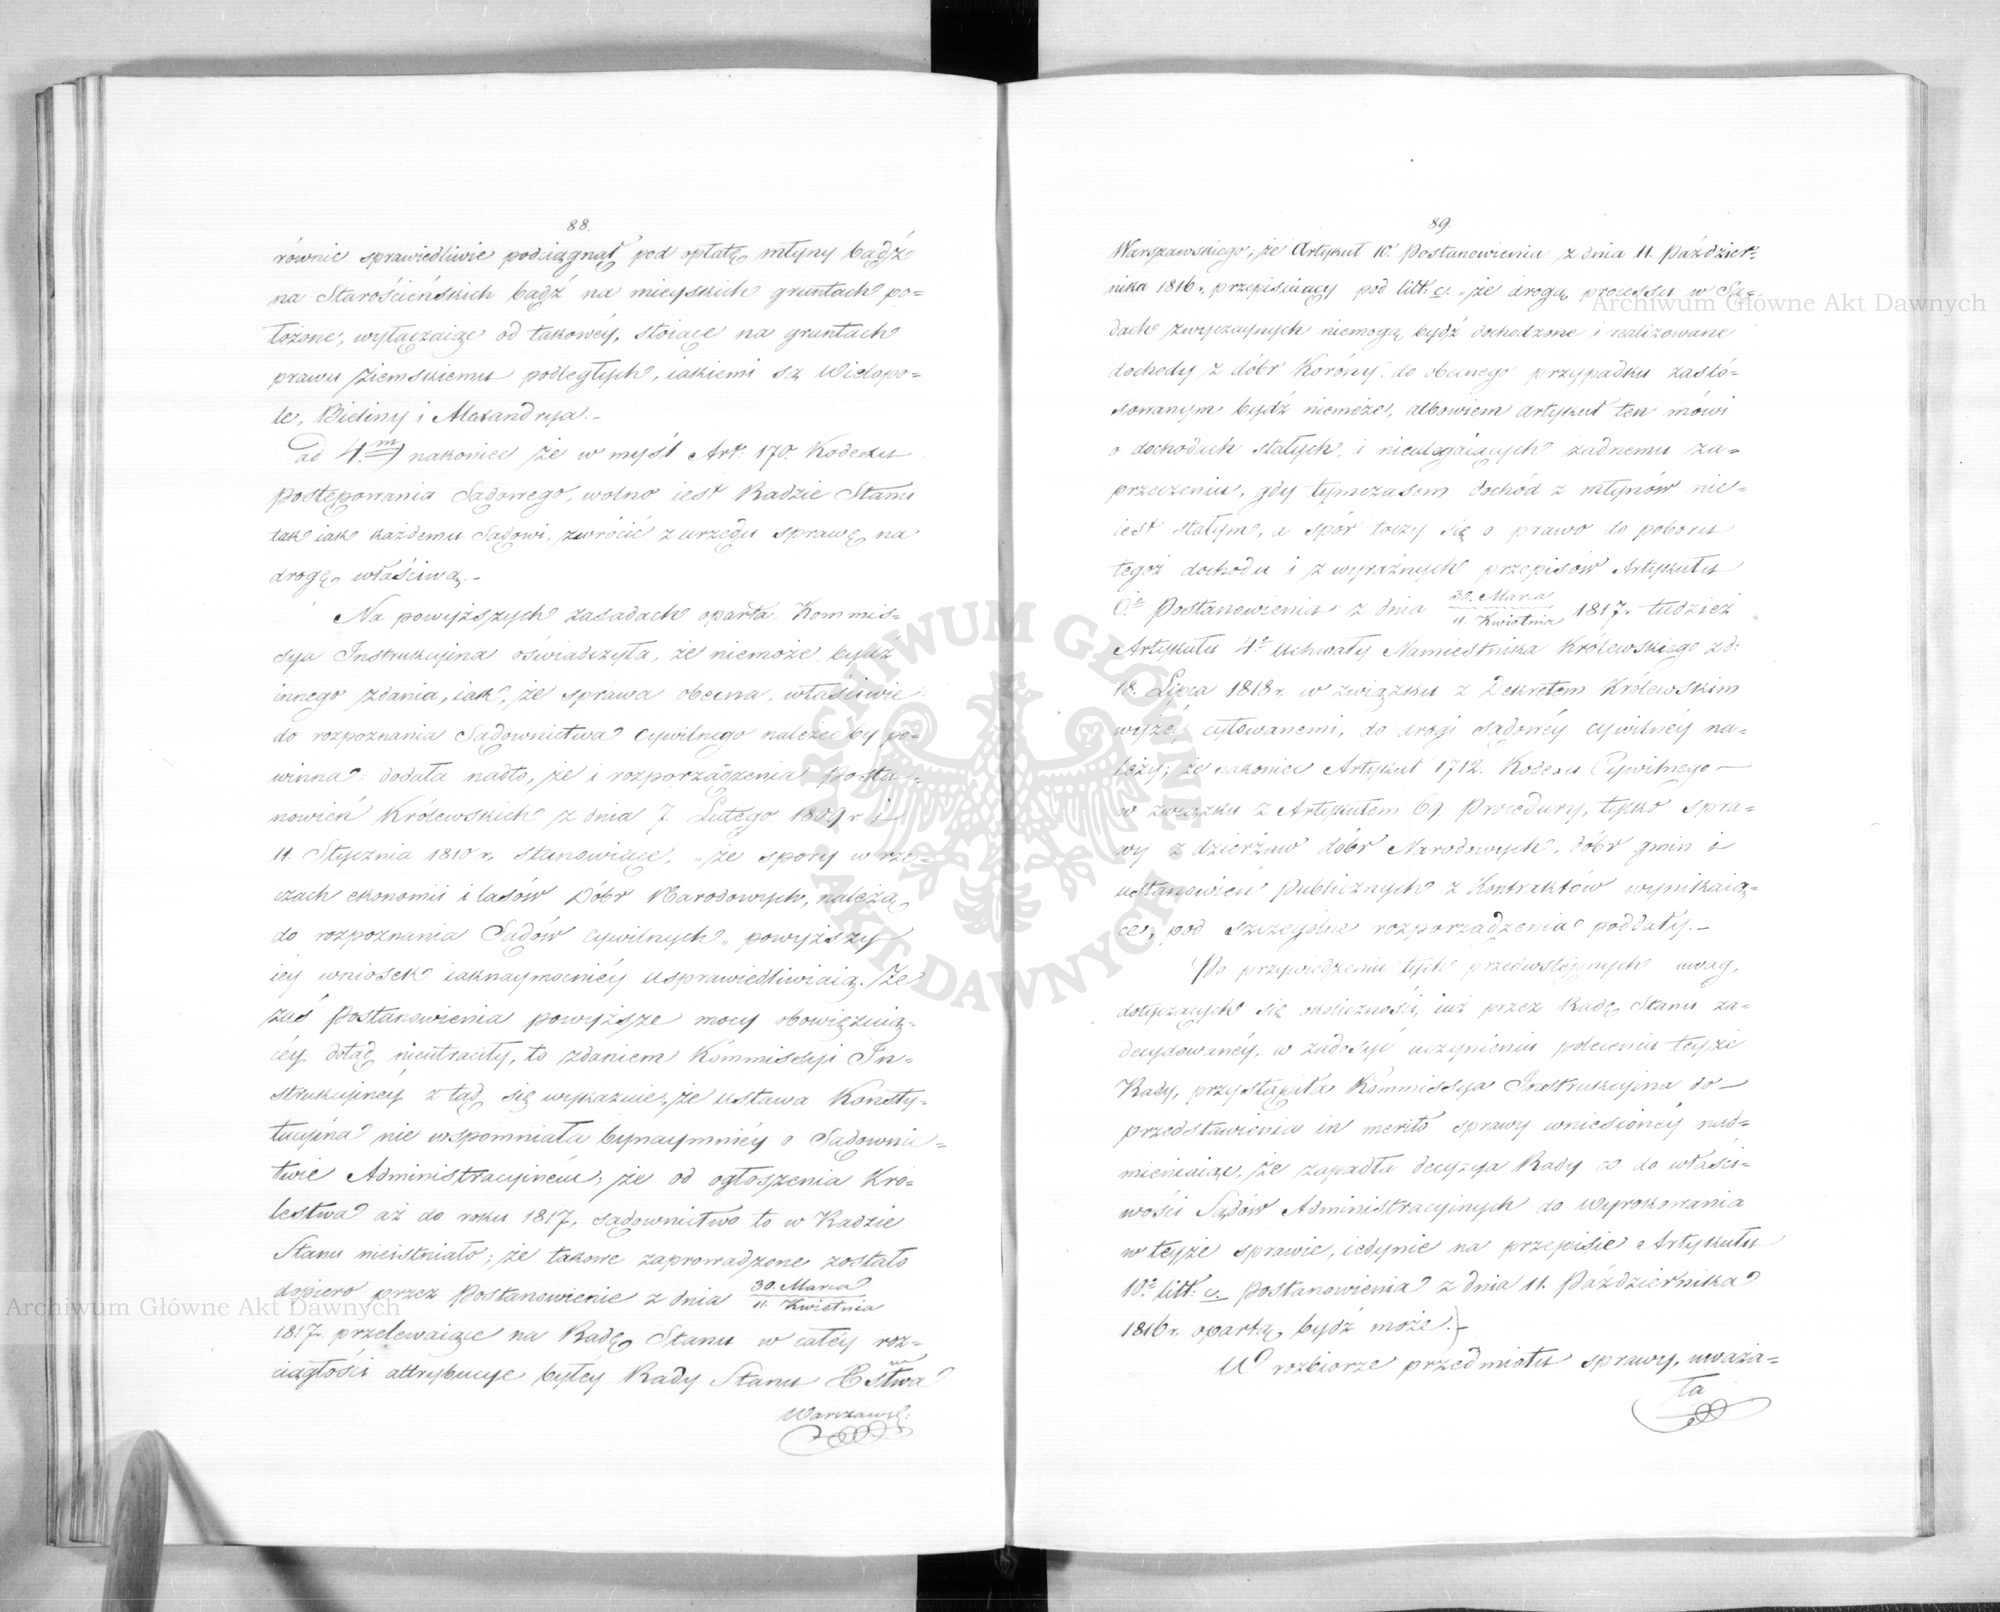 88.
równie sprawiedliwie podciągnął pod opłatę młyny bądź
na Starościńskich bądź na mieyskich gruntach po=
łożone, wyłączaiąc od takowéy, stoiące na gruntach
prawu ziemskiemu podległych, iakiemi są Wielopo=
le, Bieliny i Alexandrya.-
ad 4.m nakoniec że w myśl Art: 170. Kodexu
postępowania Sądowego, wolno iest Radzie Stanu
tak iak każdemu Sądowi, zwrócić z urzędu sprawę na
drogę właściwą.-
Na powyższych zasadach oparta, Kommis=
sya Instrukcyina oświadczyła, że niemoże bydź
innego zdania, iak, że sprawa obecna, właściwie
do rozpoznania Sądownictwa cywilnego należeć by po=
winna: dodała nadto, że i rozporządzenia Posta=
nowień Królewskich z dnia 7. Lutego 1809 r i
11. Stycznia 1810 r. stanowiące, „że spory w rze=
czach ekonomii i lasów Dóbr Narodowych, należą
do rozpoznania Sądów cywilnych„ powyższy
iéy wniosek iaknaymocniéy usprawiedliwiaią. Że
zaś Postanowienia powyższe mocy obowięzuią=
céy dotąd nieutraciły, to zdaniem Kommissyi In=
strukcyinéy z tąd się wykazuie, że ustawa Konsty=
tucyina nie wspomniała bynaymniéy o Sądownic=
twie Administracyinem; że od ogłoszenia Kró=
lestwa aż do roku 1817, sądownictwo to w Radzie
Stanu nieistniało; że takowe zaprowadzone zostało
dopiero przez Postanowienie z dnia 30. Marca
11. Kwietnia
1817r. przelewaiące na Radę Stanu w całéy roz=
ciągłości attrybucye byłéy Rady Stanu Xstwa
Warszawsk:
89.
Warszawskiego; że Artykuł 10. Postanowienia z dnia 11. Paździer=
nika 1816 r. przepisuiący pod litt: c. „że drogą processu w Są=
dach zwyczaynych niemogą bydź dochodzone i realizowane
dochody z dóbr Korony„ do obecnego przypadku zasto=
sowanym bydź niemoże, albowiem artykuł ten mówi
o dochodach stałych, i nieulegaiących żadnemu za=
przeczeniu, gdy tymczasem dochód z młynów nie=
iest stałym, a spór toczy się o prawo do poboru
tegoż dochodu i z wyraźnych przepisów Artykułu
6o Postanowienia z dnia 30. Marca
11. Kwietnia 1817r. tudzież
Artykułu 4o Uchwały Namiestnika Królewskiego z d:
18. Lipca 1818 r. w związku z Dekretem Królewskim
wyżéy cytowanemi, do drogi sądowéy cywilnéy na=
leży; że nakoniec Artykuł 1712. Kodexu Cywilnego —
w związku z Artykułem 69. Procedury, tylko spra=
wy z dzierżaw dóbr Narodowych, dóbr gmin i
ustanowień Publicznych z Kontraktów wynikaią=
ce, pod szczególne rozporządzenia poddały.—
Po przywiedzeniu tych przedwstępnych uwag,
dotyczących się okoliczności, iuż przez Radę Stanu za=
decydowanéy, w zadosyć uczynieniu poleceniu teyże
Rady, przystąpiła Kommissya Instrukcyina do —
przedstawienia in merito sprawy wniesionéy nad=
mieniaiąc, że zapadła decyzya Rady co do właści=
wości Sądów Administracyinych do wyrokowania
w teyże sprawie, iedynie na przepisie Artykułu
10o litt: c. Postanowienia z dnia 11. Października
1816 r. opartą bydź może.—
W rozbiorze przedmiotu sprawy, uważa=
ła
Archiwum Główne Akt Dawnych
Archiwum Główne Akt Dawnych
ARCHIWUM GŁÓWNE
AKT DAWNYCH